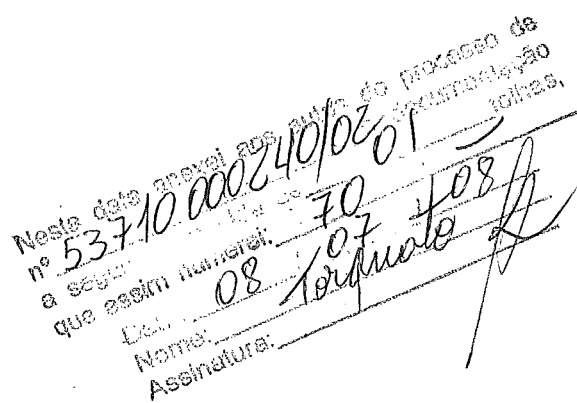 Neste data anexei aos autos do processo de
nº 53710 000240/02 documentação
a seguir 01 folhas,
que assim numerei: 70
Dat. 08 07 08
Nome: Torquato
Assinatura: